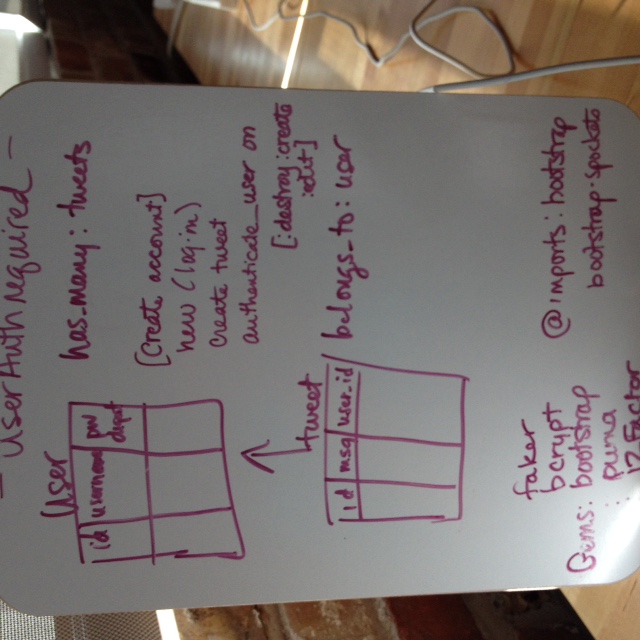 - UserAuth required -
User
id username pw
digest
has_many: tweets
[Create account]
new (log-in)
create tweet
authenticate_user on
[:destroy :create
:edit]
tweet
id msg user_id
belongs_to: user
faker
bcrypt
Gems: bootstrap
: puma
12 Factor
@imports: bootstrap
bootstrap-sprockets